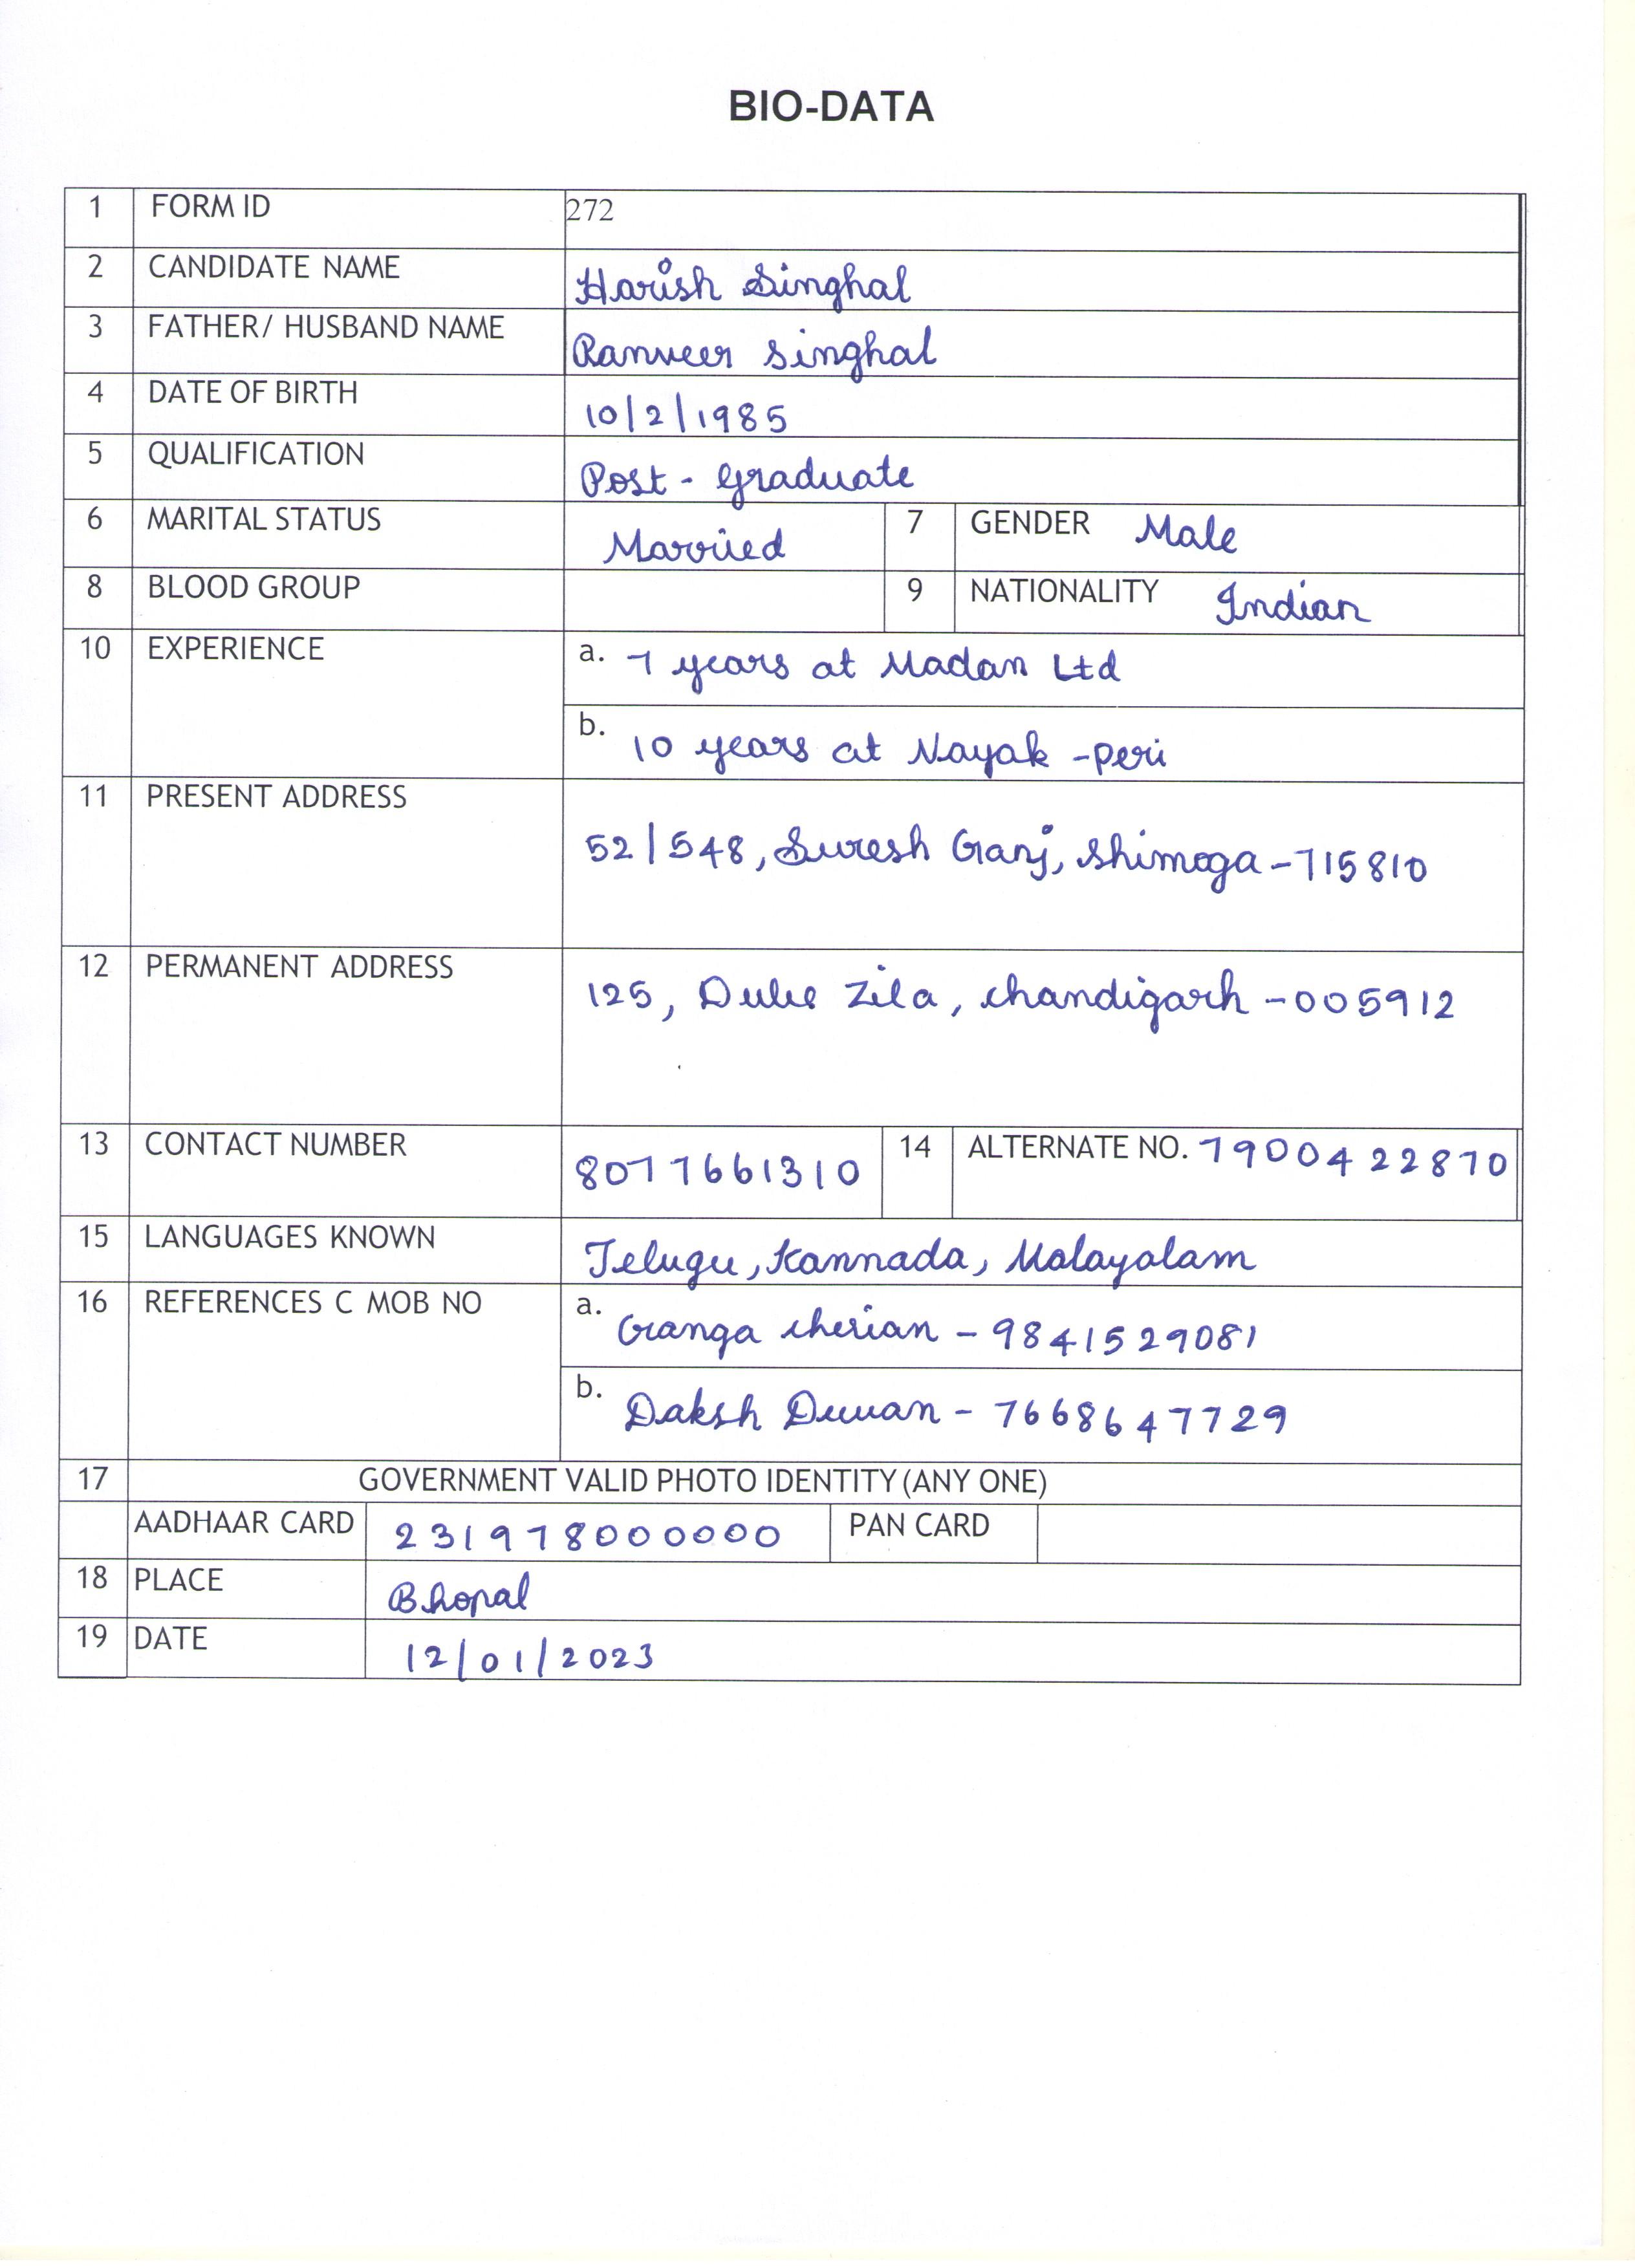 BIO-DATA
1 FORM ID 272
2 CANDIDATE NAME Harish Singhal
3 FATHER/ HUSBAND NAME Ranveer Singhal
4 DATE OF BIRTH 10/2/1985
5 QUALIFICATION Post - Graduate
6 MARITAL STATUS Married 7 GENDER Male
8 BLOOD GROUP 9 NATIONALITY Indian
10 EXPERIENCE a. 7 years at Madan Ltd
b. 10 years at Nayak -Peri
11 PRESENT ADDRESS 52/548, Suresh Ganj, Shimoga - 715810
12 PERMANENT ADDRESS 125, Zila, Chandigarh - 005912
13 CONTACT NUMBER 8077661310 14 ALTERNATE NO. 7900422870
15 LANGUAGES KNOWN Telugu, Kannada, Malayalam
16 REFERENCES C MOB NO a. Ganga Cherian - 9841529081
b. Daksh Dewan - 7668647729
17 GOVERNMENT VALID PHOTO IDENTITY (ANY ONE)
AADHAAR CARD 231978000000 PAN CARD
18 PLACE Bhopal
19 DATE 12/01/2023